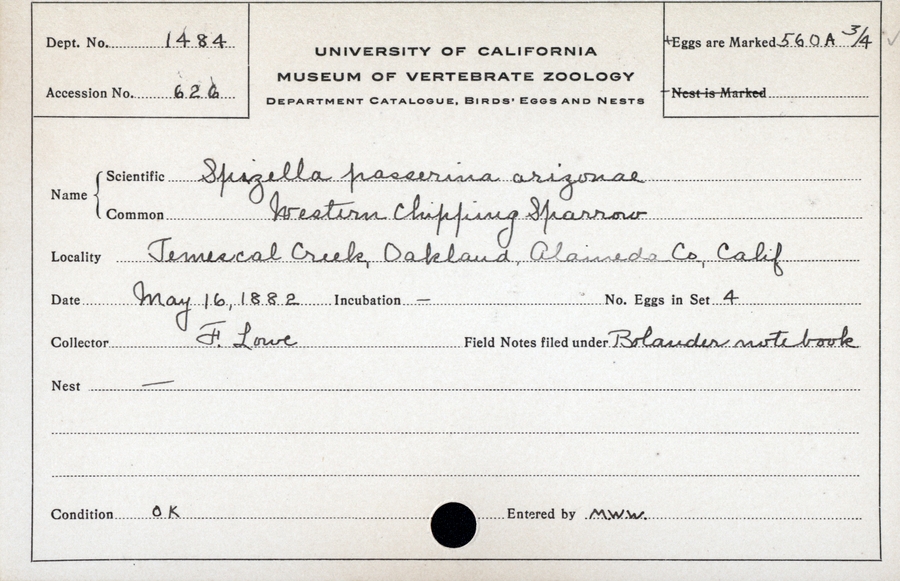 Dept. No. 1484
Accession No. 626
UNIVERSITY OF CALIFORNIA
MUSEUM OF VERTEBRATE ZOOLOGY
DEPARTMENT CATALOGUE, BIRDS' EGGS AND NESTS
Eggs are Marked 560A 3/4
Nest is Marked
Name
Scientific Spizella passerina arizonae
Common Western Chipping Sparrow
Locality Temescal Creek, Oakland, Alameda Co, Calif
Date May 16, 1882 Incubation — No. Eggs in Set 4
Collector F. Lowe Field Notes filed under Bolander note book
Nest —
Condition OK Entered by M.W.W.